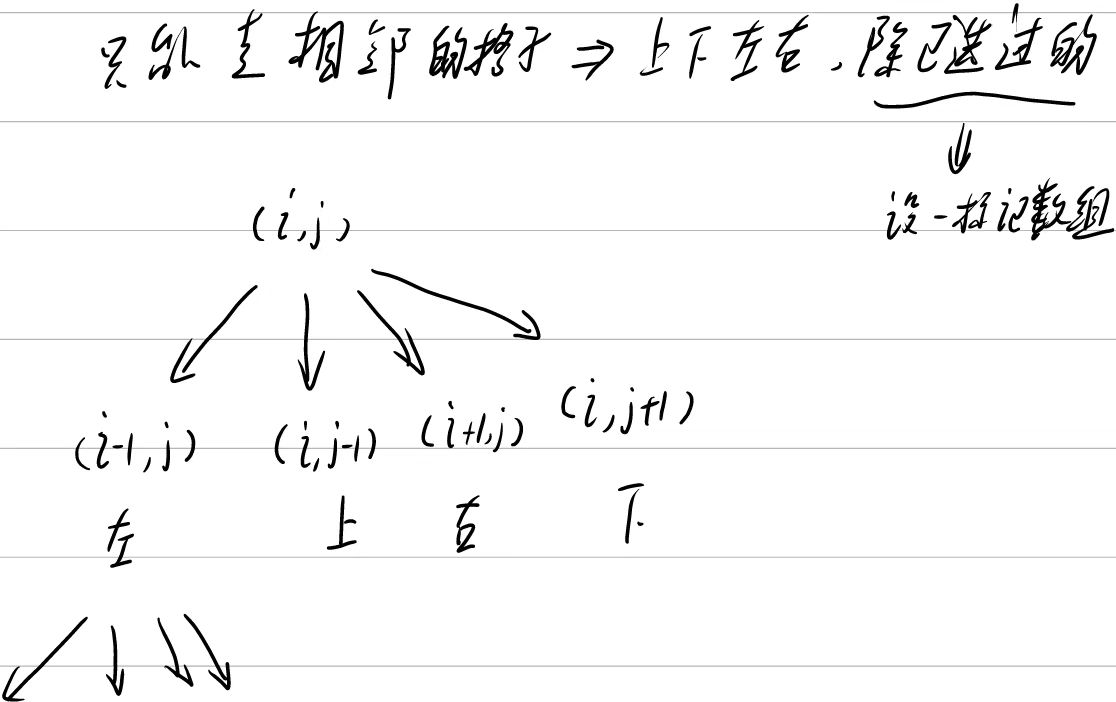 只能走相邻的格子 ⇒ 上下左右，除已选过的
设一标记数组
(i,j)
(i-1,j) (i,j-1) (i+1,j) (i,j+1)
左 上 右 下